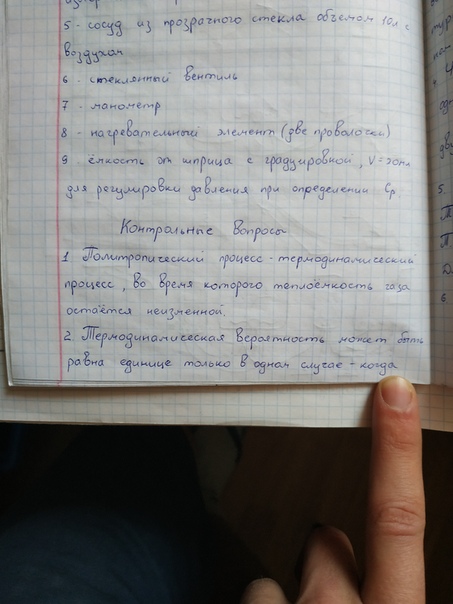 5 - сосуд из прозрачного стекла объемом 10л с
воздухом
6 - стеклянный вентиль
7 - манометр
8 - нагревательный элемент (две проволочки)
9 ёмкость от шприца с градуировкой, V=
для регулировки давления при определении Cp.
Контрольные вопросы
1. Политропический процесс - термодинамический
процесс, во время которого теплоёмкость газа
остаётся неизменной.
2. Термодинамическая вероятность может быть
равна единице только в одном случае - когда
5.
6